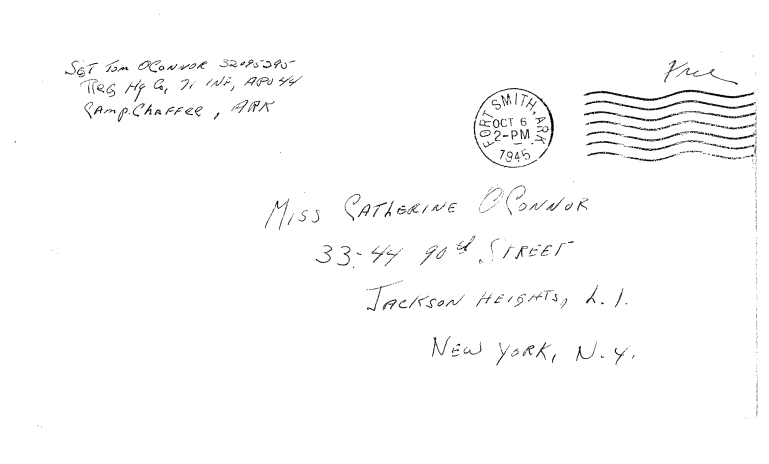 SGT TOM OCONNOR 32095295
REG HQ Co, 71 INF, APO 44
CAMP. CHAFFEE, ARK
Free
FORT SMITH, ARK.
OCT 6
2-PM
1945
MISS CATHERINE OCONNOR
33-44 90th STREET
JACKSON HEIGHTS, L.I.
NEW YORK, N.Y.